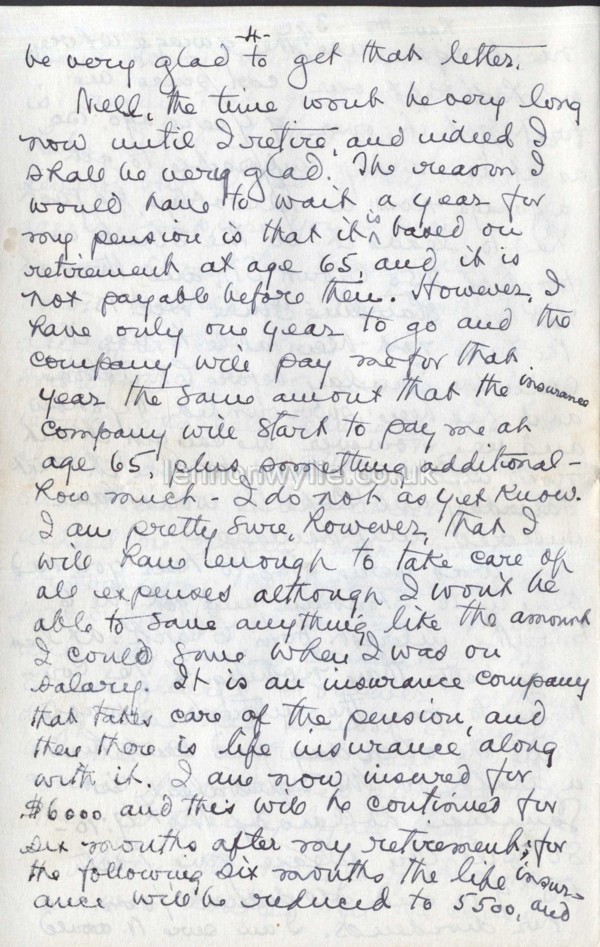 -4-
be very glad to get that letter.
Well, the time wont be very long
now until I retire, and indeed I
shall be very glad. The reason I
would have to wait a year for
my pension is that it is based on
retirement at age 65, and it is
not payable before then. However, I
have only one year to go and the
company will pay me for that
year the same amount that the insurance
company will start to pay me at
age 65, plus something additional -
how much - I do not as yet know.
I am pretty sure, however, that I
will have enough to take care of
all expenses although I won't be
able to save anything like the amount
I could save when I was on
salary. It is an insurance company
that takes care of the pension, and
then there is life insurance along
with it. I am now insured for
$6000 and this will be continued for
six months after my retirement; for
the following six months the life insur-
ance will be reduced to 5500, and
lennonwylie.co.uk